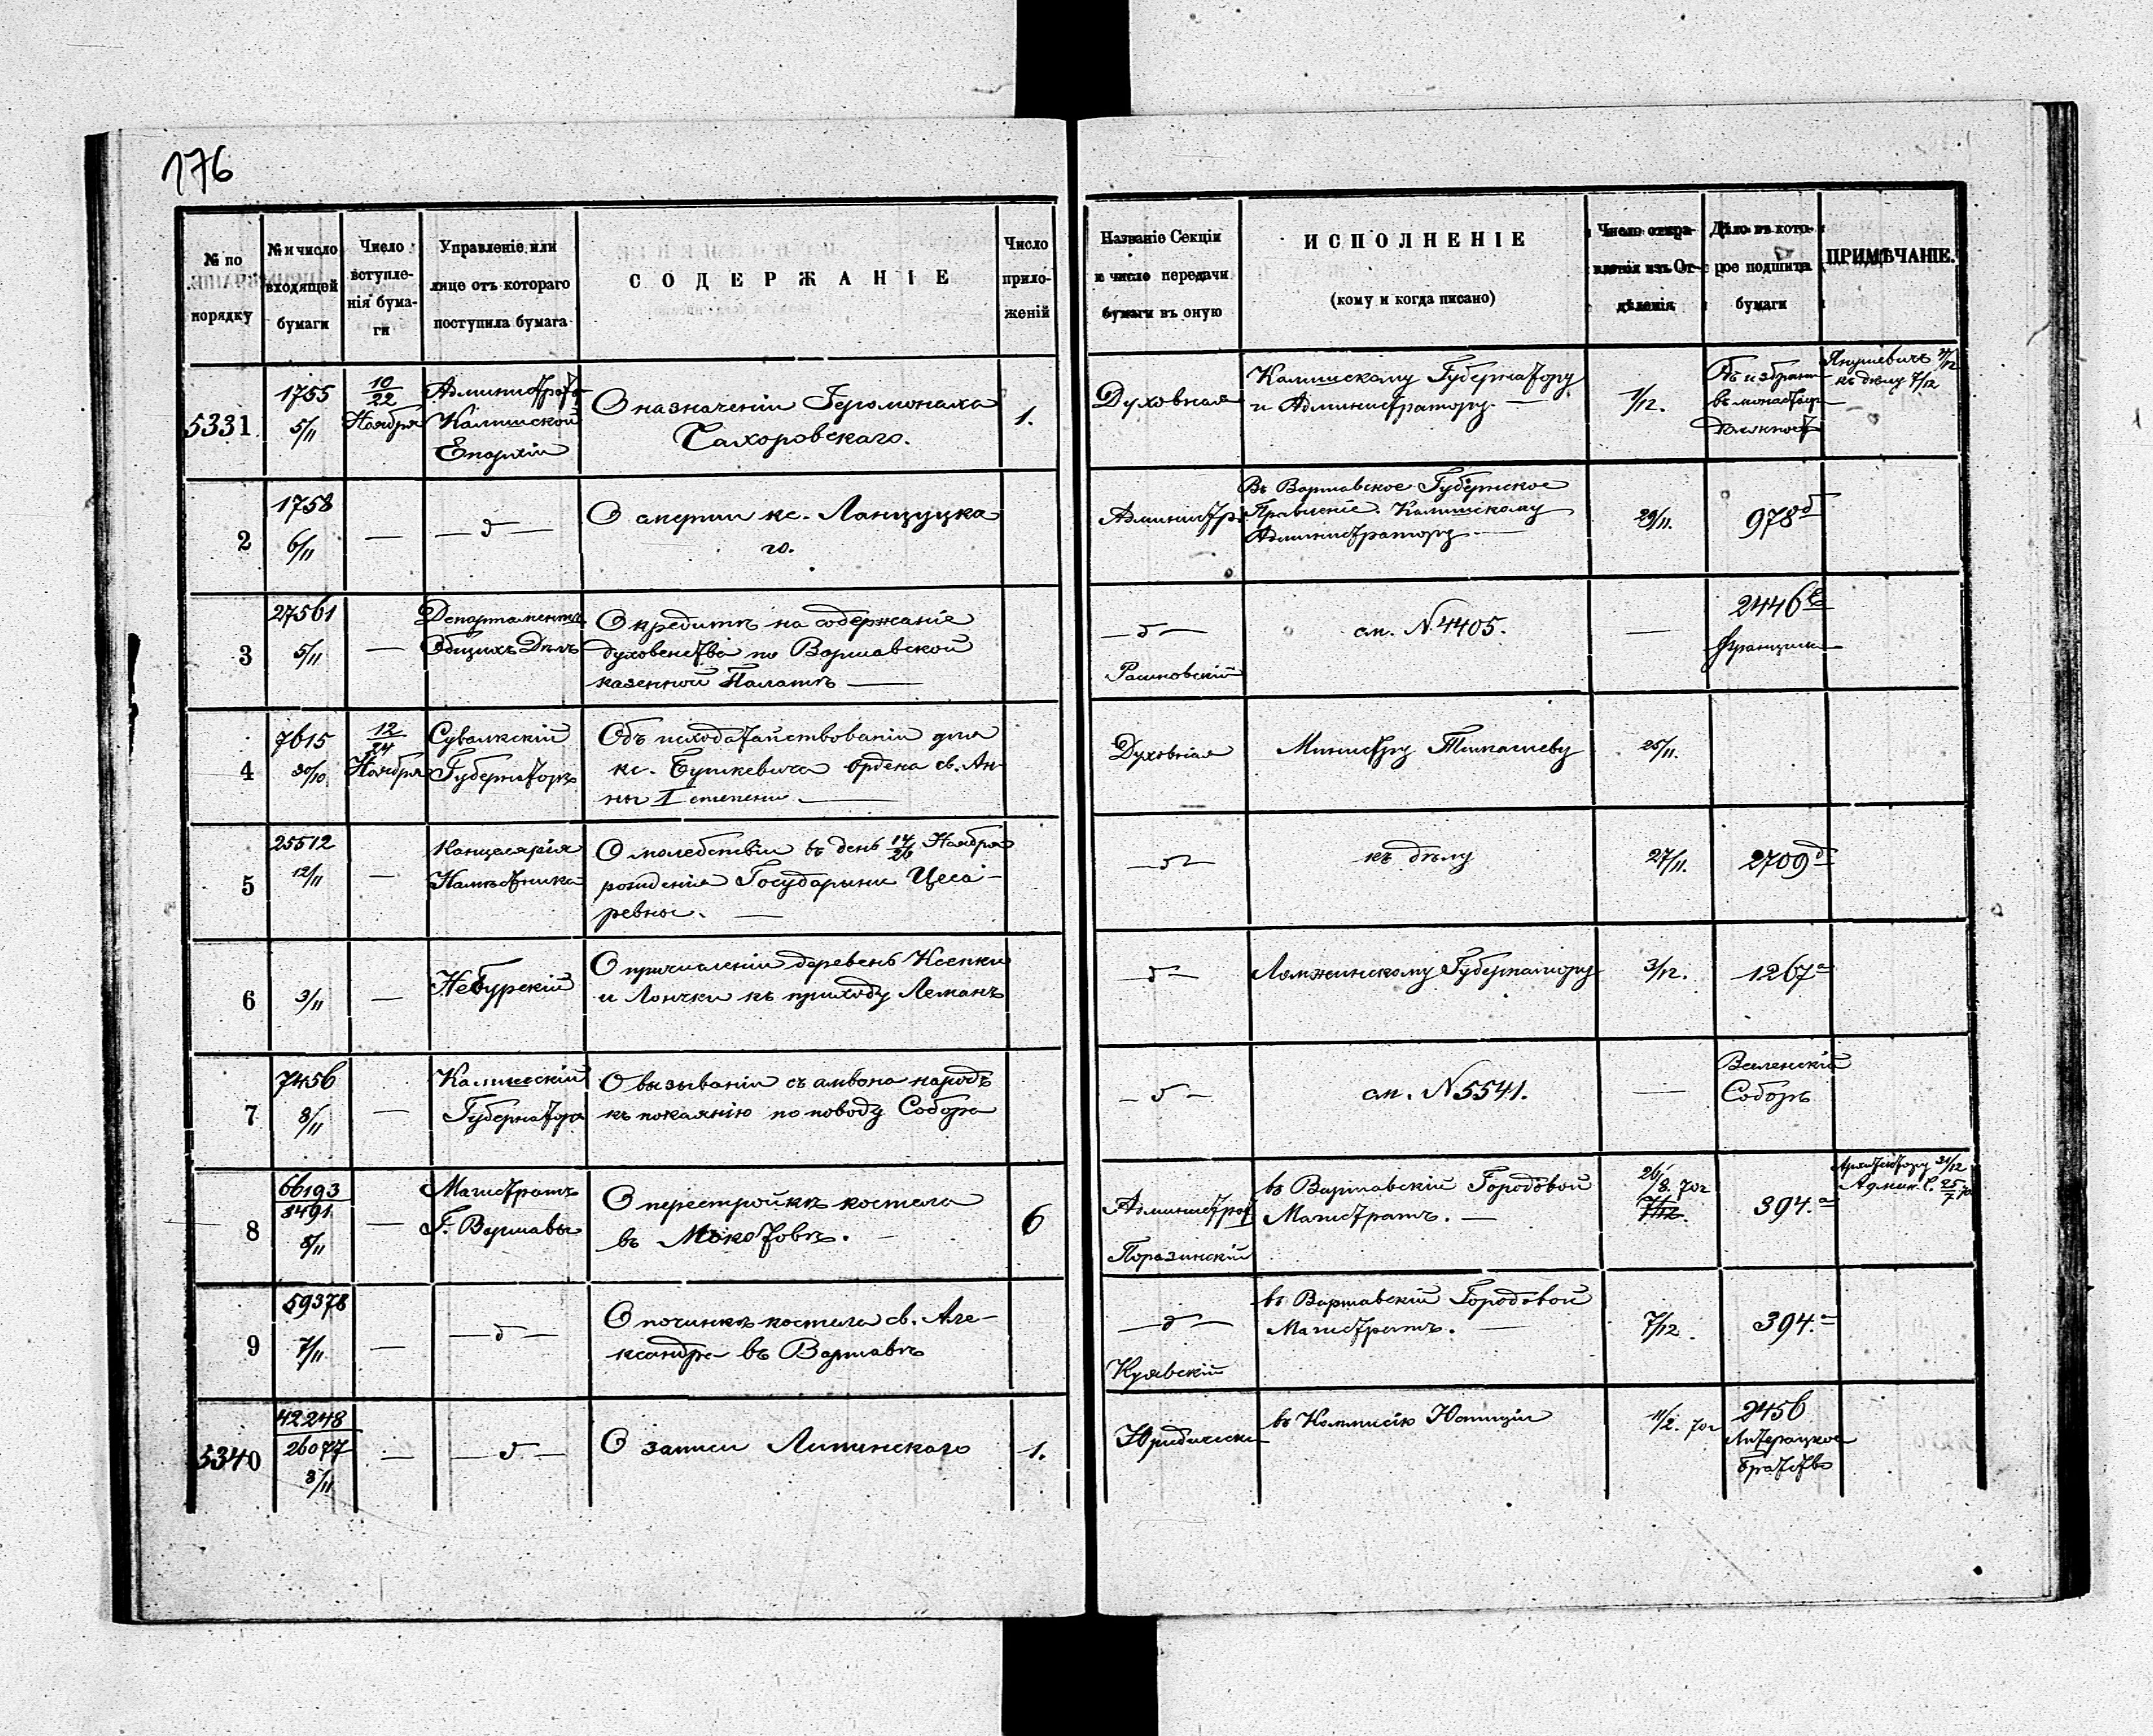 176
№ по порядку
№ и число входящей бумаги
Число вступленія бумаги
Управленіе или лице отъ котораго поступила бумага
СОДЕРЖАНІЕ
Число приложеній
Названіе Секціи и число передачи бумаги въ оную
ИСПОЛНЕНІЕ
(кому и когда писано)
Число отправленія изъ Отдѣленія
Дѣло въ которое подшита бумаги
ПРИМѢЧАНІЕ.
5331
1755
5/11
10/22
Ноября
Калишской
Епархіи
О назначеніи Іеромонаха
1.
Духовная
Калишскому Губернатору
и Администратору.
1/12.
въ монастыр
7/12
2
1758
6/11
—
— д —
О смерти кс. Ланцуцка
го.
Администр.
Въ Варшавское Губернское
Правленіе. Калишскому
Администратору.
29/11.
978 д
3
27561
5/11
—
Департаментъ
Общихъ Дѣлъ
О кредитѣ на содержаніе
духовенства по Варшавской
казенной Палатѣ —
— д —
Рашковскій
см. N 4405.
—
2446
4
7615
30/10
12/24
Ноября
Сувалкскій
Губернаторъ
Объ исходатайствованіи для
кс. Буткевича ордена св. Ан-
ны I степени. —
Духовная
Министру Тимашеву
25/11.
5
25512
12/11
—
Канцелярія
Намѣстника
О молебствіи въ день 14/26 Ноября
рожденія Государыни Цеса-
ревны. —
— д —
къ дѣлу
27/11.
2709 д
6
3/11
—
О причисленіи деревень Ксенки
и Лончки къ приходу Леманъ
— д —
Ломжинскому Губернатору
3/12.
1267 а
7
7456
8/11
—
Калишскій
Губернаторъ
О вызываніи съ амвона народъ
къ покаянію по поводу Собора
— д —
см. N 5541.
—
Вселенскій
Соборъ
8
66193
8491
8/11
—
Магистратъ
Г. Варшавы
О перестройкѣ костела
въ Мокотовѣ.
6
Администрат
Поразинскій
въ Варшавскій Городовой
Магистратъ. —
26/8. 70г
7/12.
394. а
Архитектору 31/12
9
59378
7/11
—
— д —
О починкѣ костела св. Але-
ксандра въ Варшавѣ
— д —
Куявскій
въ Варшавскій Городовой
Магистратъ. —
7/12.
394. а
5340
42248
26077
8/11
—
— д —
О записи Липинскаго
1.
Юридическ
въ Коммисію Юстиціи
11/2. 70г
2456
Литерацкое
братство